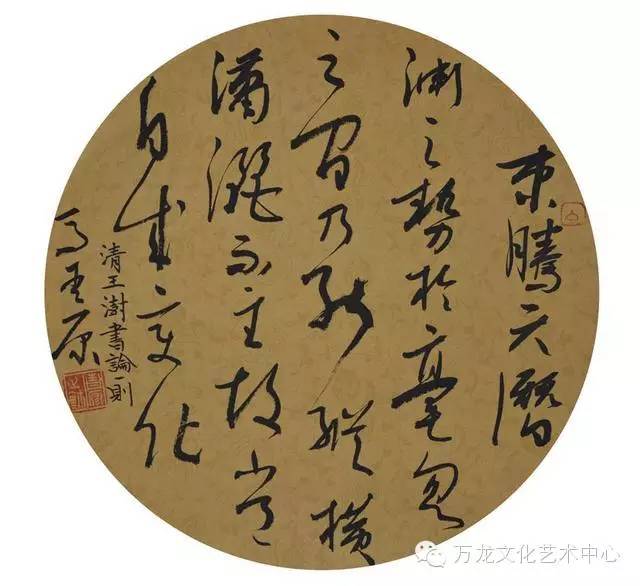 束騰天潛
淵之勢於毫忽
之間乃能縱橫
瀟灑不主故常
自成變化
清王澍書論一則
万龙文化艺术中心